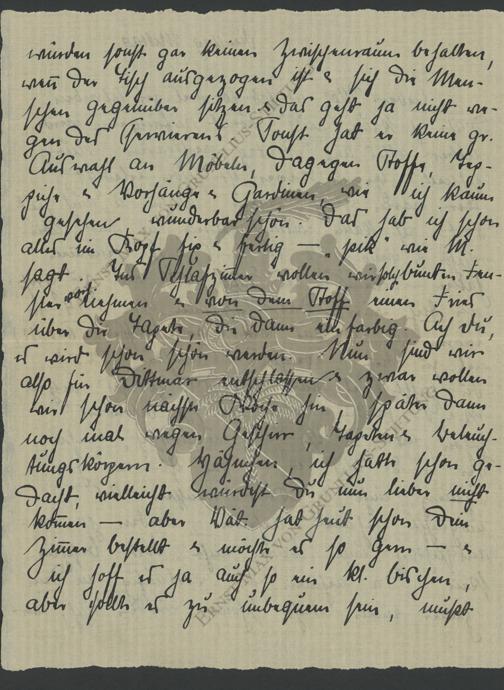 würden sonst gar keinen Zwischenraum behalten,
wen̄ der Tisch ausgezogen ist & sich die Men-
schen gegenüber sitzen & das geht ja nicht we-
gen des Servierens. Sonst hat er keine gr.
Auswahl an Möbeln, dagegen Stoffe, Tep-
piche & Vorhänge & Gardinen wie ich kaum
gesehen wunderbar schön. Das hab ich schon
alles im Kopf fix & fertig — "pük" wie M.
sagt. Ins Schlafzimmer wollen wir solch bunten Fen-
stervor nehmen & von dem Stoff einen Fries
über die Tapete, die dann einfarbig. Ach du,
es wird schon schön werden. Nun sind wir
also für Dittmar entschlossen & zwar wollen
wir schon nächste Woche hin später dann
noch mal wegen Geschirr, Tapeten & Beleuch-
tungskörpern. ich hatte schon ge-
dacht, vielleicht würdest Du nun lieber nicht
kom̄en — aber Vät. hat heut schon Dein
Zim̄er bestellt & möchte es so gern — &
ich hoff es ja auch so ein kl. bischen,
aber sollte es zu unbequem sein, mußt